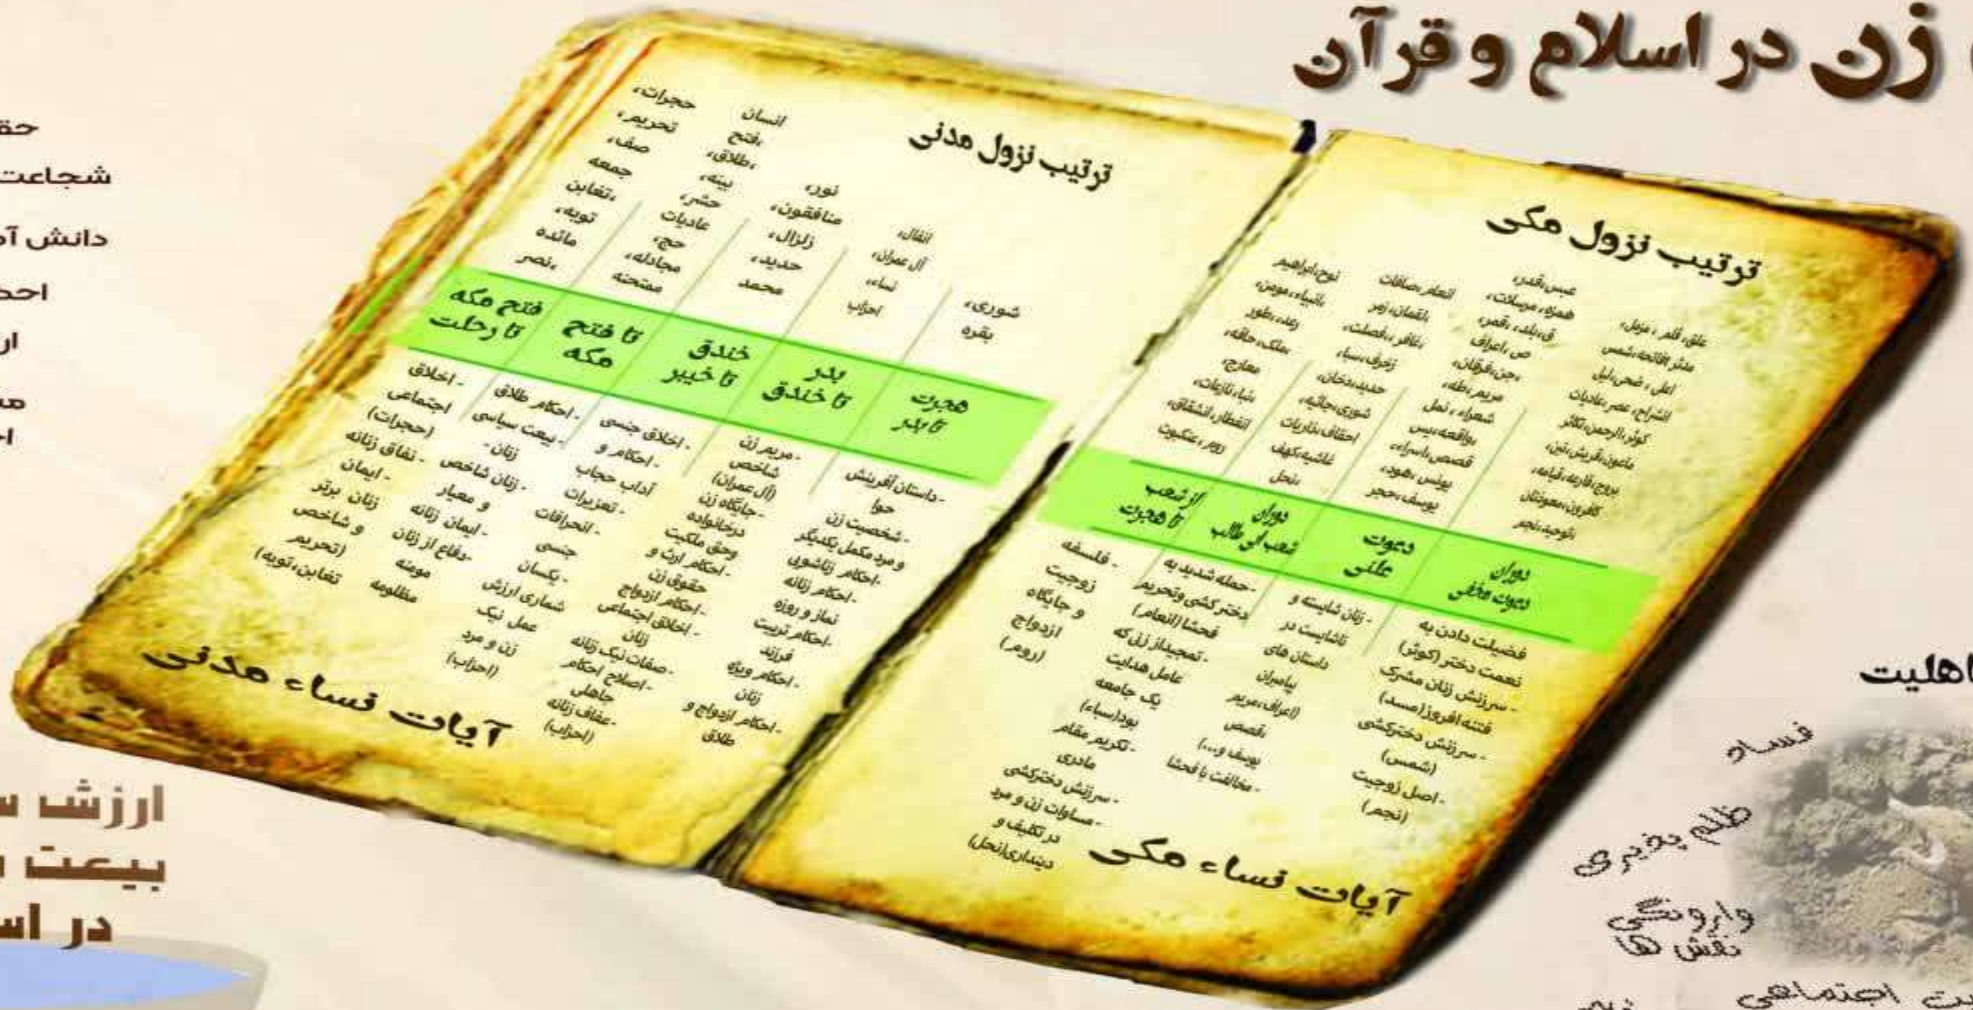 زن در اسلام و قرآن
ترتیب نزول مکی
علق، قلم، مزمل،
مدثر، فاتحه، شمس
اعلی، ضحی، لیل
انشراح، عصر، عادیات
کوثر، الرحمن، تکاثر
ماعون، قریش، تین،
بروج، قارعه، قیامه،
کافرون، معوذتان
،توحید، نجم
عبس، قدر،
همزه، مرسلات،
ق، بلد، قمر،
ص، اعراف
،جن، فرقان،
مریم، طه،
شعراء، نمل
،واقعه، یس
قصص، اسراء،
یونس، هود،
یوسف، حجر
انعام، صافات
،لقمان، زمر
،غافر، فصلت،
زخرف، سباء،
حدید، دخان،
شوری، جاثیه،
احقاف، ذاریات
غاشیه، کهف
،نحل
نوح، ابراهیم
،انبیاء، مومن،
رعد، طور
،ملک، حاقه،
معارج،
،نباء، نازعات،
انفطار، انشقاق،
روم، عنکبوت
دوران
دعوت مخفی
دعوت
علنی
دوران
شعب ابی طالب
از شعب
تا هجرت
فضیلت دادن به
نعمت دختر (کوثر)
- سرزنش زنان مشرک
فتنه افروز (مسد)
- سرزنش دخترکشی
(شمس)
- اصل زوجیت
(نجم)
- زنان شایسته و
ناشایست در
داستان های
پیامبران
(اعراف، مریم
،قصص
یوسف و...)
- مخالفت با فحشا
- حمله شدید به
دختر کشی و تحریم
فحشا (انعام)
- تمجید از زنی که
عامل هدایت
یک جامعه
بود (سباء)
- تکریم مقام
مادری
- سرزنش دخترکشی
- مساوات زن و مرد
در تکلیف و
دینداری (نحل)
- فلسفه
زوجیت
و جایگاه
ازدواج
(روم)
آیات نساء مکی
ترتیب نزول مدنی
شوری،
بقره
انفال،
آل عمران،
نساء،
احزاب
نور،
منافقون،
زلزال،
حدید،
محمد
انسان
،فتح
،طلاق،
بینه،
حشر،
عادیات
حج،
مجادله،
ممتحنه
حجرات،
تحریم،
صف،
جمعه
،تغابن
توبه،
مائده
،نصر
هجرت
تا بدر
بدر
تا خندق
خندق
تا خیبر
تا فتح
مکه
فتح مکه
تا رحلت
- داستان آفرینش
حوا
- شخصیت زن
و مرد مکمل یکدیگر
- احکام زناشوی
- احکام زنانه
نماز و روزه
- احکام تربیت
فرزند
- احکام ویژه
زنان
- احکام ازدواج و
طلاق
- مریم زن
شاخص
(آل عمران)
- جایگاه زن
درخانواده
وحق ملکیت
- احکام ارث و
حقوق زن
- احکام ازدواج
- اخلاق اجتماعی
زنان
- صفات نیک زنانه
- اصلاح احکام
جاهلی
- عفاف زنانه
(احزاب)
- اخلاق جنسی
- احکام و
آداب حجاب
- تعزیرات
- انحرافات
جنسی
- یکسان
شماری ارزش
عمل نیک
زن و مرد
(احزاب)
- احکام طلاق
- بیعت سیاسی
زنان -
- زنان شاخص
و معیار
- ایمان زنانه
- دفاع از زنان
مومنه
مظلومه
- اخلاق
اجتماعی
(حجرات)
- نفاق زنانه
- ایمان
زنان برتر
و شاخص
(تحریم
تغابن، توبه)
آیات نساء مدنی
شجاعت
ارزش
بیعت
اهلیت
فساد
ظلم پذیری
وارونگی
نقش ها
اجتماعی